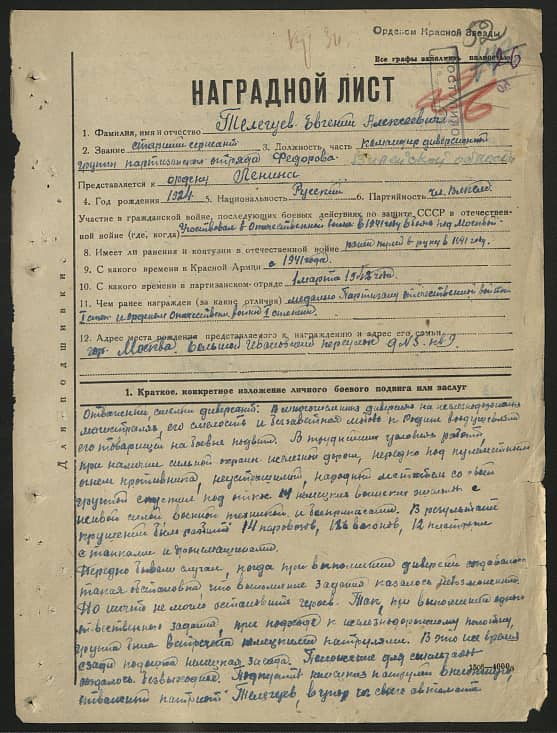 Орденом Красной Звезды
Все графы заполнять полностью
НАГРАДНОЙ ЛИСТ
1. Фамилия, имя и отчество Телегуев Евгений Алексеевич
2. Звание старший сержант 3. Должность часть командир диверсионной
группы партизанского отряда Федорова
Представляется к ордену Ленина
4. Год рождения 1924 5. Национальность Русский 6. Партийность чл. ВЛКСМ
Участие в гражданской войне, последующих боевых действиях по защите СССР в отечествен-
ной войне (где, когда) Участвовал в Отечественной войне в 1941 году в боях под Москвой
8. Имеет ли ранения и контузии в отечественной войне ранен пулей в руку в 1941 году.
9. С какого времени в Красной Армии с 1941 года.
10. С какого времени в партизанском отряде 1 марта года.
11. Чем ранее награжден (за какие отличия) медалью Партизану отечественной войны
I степ и орденом Отечествен. войны I степени.
12. Адрес места рождения представляемого к награждению и адрес его семьи
гор. Москва. Большой переулок д №5. кв 9
Для подшивки
1. Краткое, конкретное изложение личного боевого подвига или заслуг
Отважный, смелый диверсант. В диверсию на железнодорожных
магистралях, его смелость и беззаветная любовь к Родине воодушевляли
его товарищей на боевые подвиги. В труднейших условиях работы,
при наличии сильной охраны железной дороги, нередко под пулеметным
огнем противника, неустрашимый, народный мститель со своей
группой спустил под откос 14 немецких воинских эшелонов с
живой силой военной техникой и боеприпасами. В результате
крушений было разбито 14 паровозов, вагонов, 12 платформ
с танками и бронемашинами.
Нередко бывали случаи, когда при выполнении диверсии создавалась
такая обстановка что выполнение задания казалось невозможным.
Но ничто не могло остановить героев. Так, при выполнении одного
ответственного задания, при подходе к железнодорожному полотну,
группа была встречена немецкими патрулями. В это же время
сзади подошла немецкая засада. Положение для
создалось безвыходное. Подпустив немецких патрулей вплотную,
отважный патриот Телегуев, в упор из своего автомата